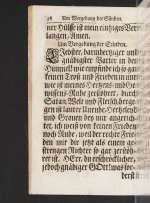 38 Um Vergebung der Sünden.
ner Hülffe ist mein einziges Ver-
langen, Amen.
Um Vergebung der Sünden.
gnädigster Vatter in dem
Himmel! wie empfinde ich so gar
keinen Trost und Frieden in mir:
wie ist meines Hertzens und Ge-
wissens-Ruhe zerstöhret, durch
Satan Welt und Fleisch, derge-
gen ist lauter Unruhe, Hertzeleid
und Grauen bey mir angerich-
tet, ich weiß von keinem Frieden
noch Ruhe, weil der rechte Frie-
den mir die jetzt als einem ge-
strengen Richter so gar zerstöh-
ret ist. HErr, du erschrecklicher,
jedoch gnädiger GOtt!
derst